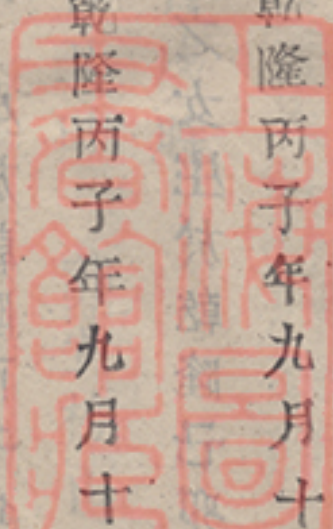 乾隆丙子年九月十
乾隆丙子年九月十